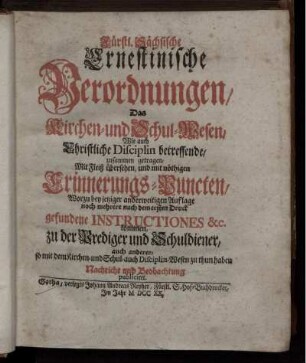 Fürstl. Sächsische
Ernestinische
Verordnungen/
Das
Kirchen-und Schul-Wesen/
Wie auch
Christliche Disciplin betreffende/
zusammen getragen/
Mit Fleiß übersehen, und mit nöthigen
Erinnerungs-Puncten/
Worzu bey jeniger anderweitigen Auflage
noch mehrere nach dem ersten Druck
gefundene INSTRUCTIONES &c.
kommen,
zu der Prediger und Schuldiener,
auch anderer,
so mit dem Kirchen und Schul- auch Disciplin-Wesen zu thun haben
Nachricht und Beobachtung
publiciret.
Gotha, verlegts Johann Andreas Reyher, Fürstl. S. Hof-Buchdrucker,
Im Jahr M DCC XX.